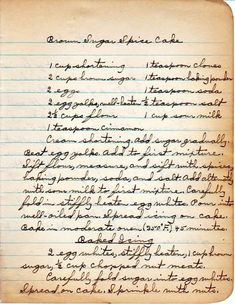 Brown Sugar Spice Cake
1 cup shortening 1 teaspoon cloves
2 cups brown sugar 1 teaspoon baking powder
2 eggs 1 teaspoon soda
2 egg yolks, well-beaten ½ teaspoon salt
2⅔ cups flour 1 cup sour milk
1 teaspoon cinnamon
Cream shortening. Add sugar gradually.
Beat egg yolks. Add to first mixture.
Sift flour, measure, and sift with spices,
baking powder, soda, and salt. Add alternately
with sour milk to first mixture. Carefully
fold in stiffly beaten egg whites. Pour into
well-oiled pan. Spread icing on cake.
Bake in moderate oven (350°F) 45 minutes.
Baked Icing
2 egg whites, stiffly beaten, 1 cup brown
sugar, ½ cup chopped nut meats.
Carefully fold sugar into egg whites.
Spread on cake. Sprinkle with nuts.